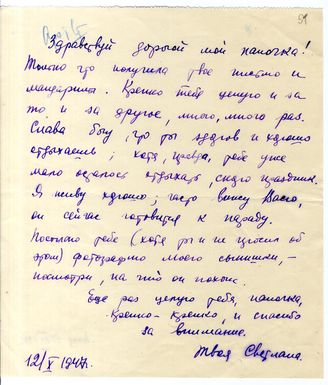 51
Здравствуй дорогой мой папочка!
Только что получила твое письмо и
мандарины. Крепко тебя целую и за
то и за другое, много, много раз.
Слава богу, что ты здоров и хорошо
отдыхаешь; хотя, правда, тебе уже
мало осталось отдыхать, скоро праздник.
Я живу хорошо; часто вижу Васю,
он сейчас готовится к параду.
Посылаю тебе (хотя ты и не просил об
этом) фотографию моего сынишки, –
посмотри, на что он похож.
Еще раз целую тебя, папочка,
крепко-крепко, и спасибо
за внимание.
Твоя Светлана.
12/X 1947г.